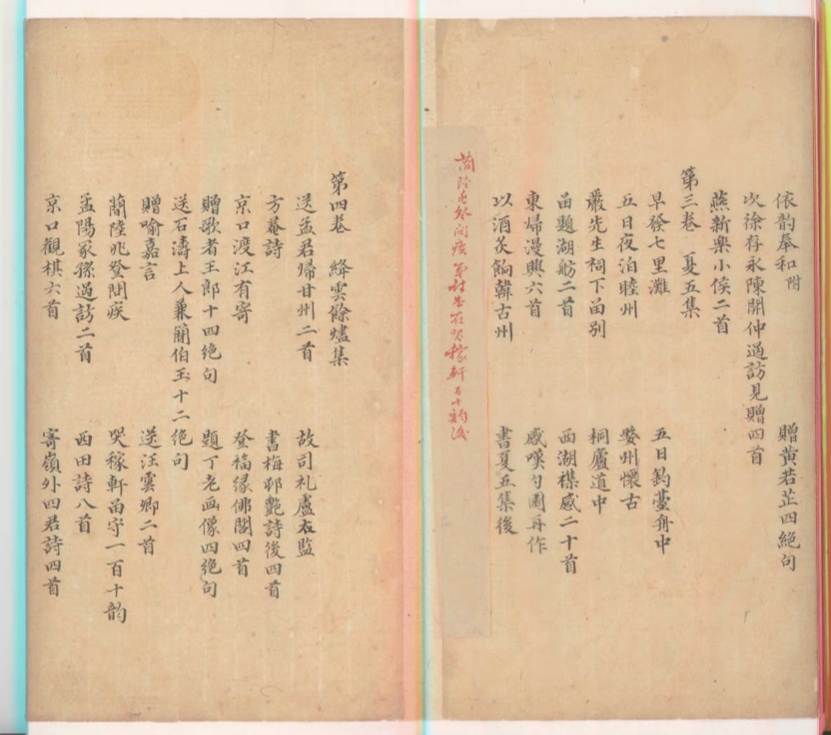 依韵奉和附 贈黄若芷四絶句
次徐存永陳開仲過訪見贈四首
燕新樂小侯二首
第三卷 夏五集
早發七里灘 五日釣臺舟中
五日夜泊睦州 婺州懷古
嚴先生祠下畄别 桐廬道中
畄題湖舫二首 西湖襍感二十首
東歸漫興六首 感嘆勺園再作
以酒炙餉韓古州 書夏五集後
第四卷 絳雲餘燼集
送孟君歸甘州二首 故司礼盧太監
方菴詩 書梅邨艶詩後四首
京口渡江有寄 登福緣佛閣四首
贈歌者王郎十四絶句 題丁老画像四絶句
送石濤上人兼簡伯玉十二絶句
贈喻嘉言 送汪雲卿二首
蘭陸兆登問疾 哭稼軒畄守一百十韵
孟陽冢孫過訪二首 西田詩八首
京口觀棋六首 寄嶺外四君詩四首